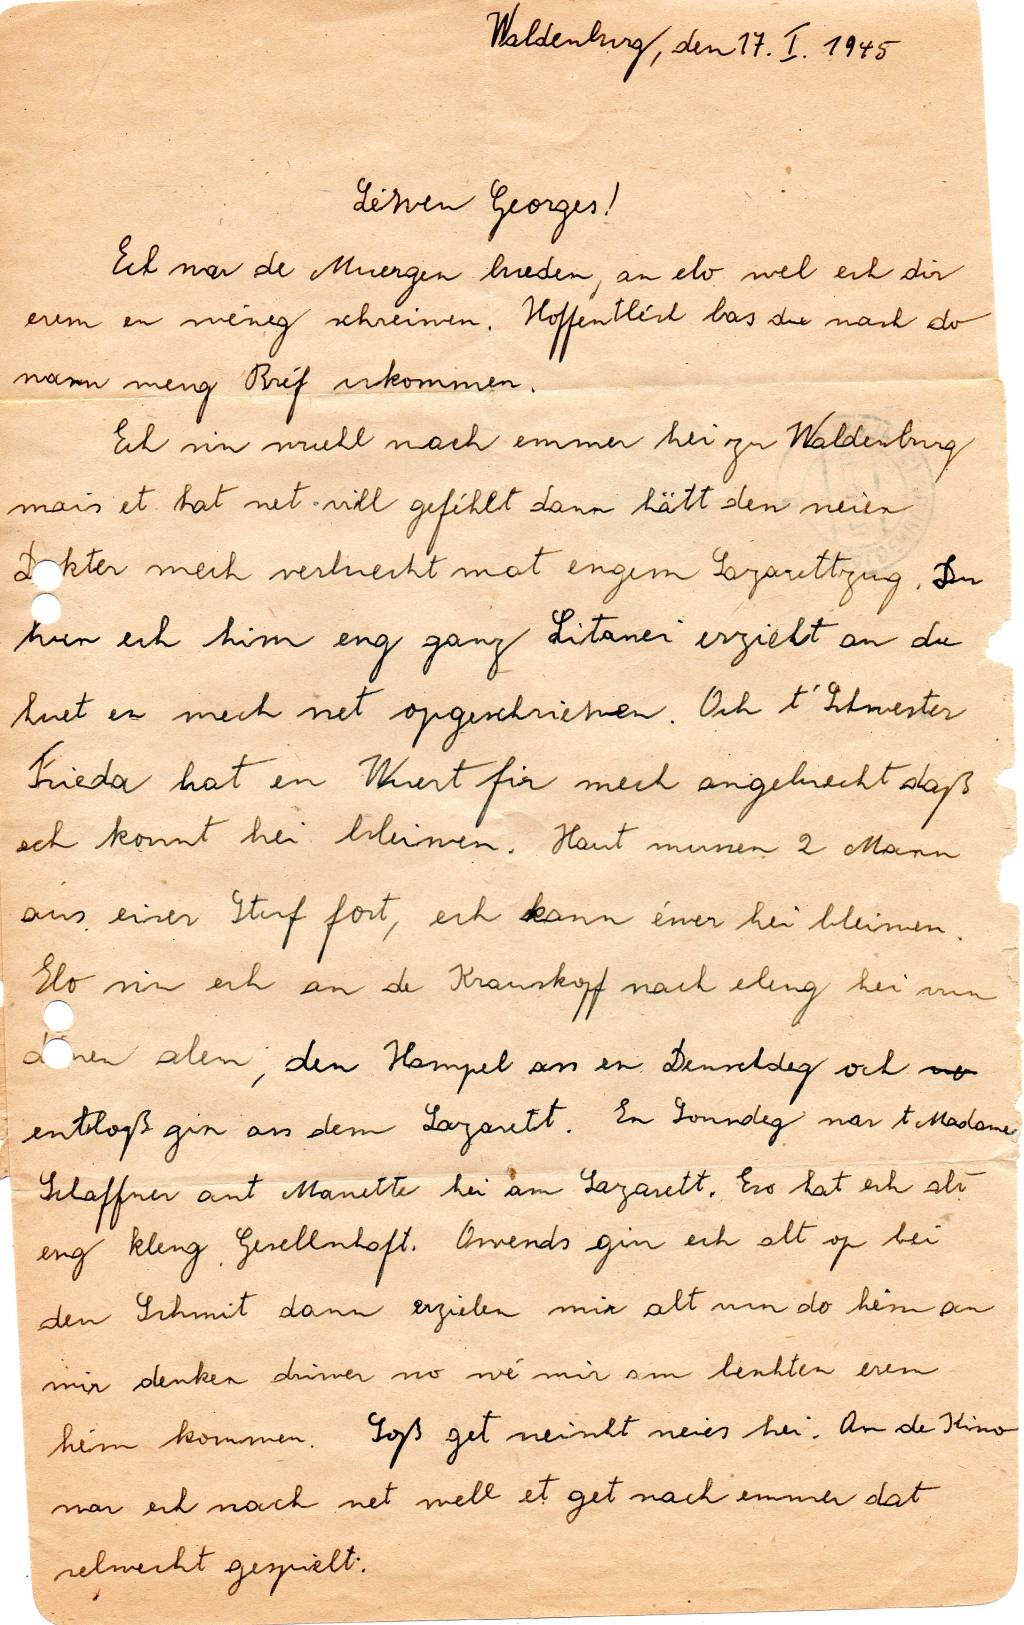 Waldenburg, den 17. I. 1945
Léiwen Georges!
Ech war de Muergen bueden, an elo wel ech dir
erem en wéneg schreiwen. Hoffentléch bas du nach do
wann meng Bréf ukommen.
Ech sin wuehl nach emmer hei zu Waldenburg
mais et hat net vill geféhlt dann hätt den neien
D kter mech verluecht mat engem Lazarettzug. Du
hun ech him eng ganz Litanei erzielt an du
huet en mech net opgeschriewen. Och t'Schwester
Frieda hat en Wuert fir mech angeluecht daß
ech konnt hei bleiwen. Haut mussen 2 Mann
aus eiser Stuf fort, ech kann éwer hei bleiwen.
Elo sin ech an de Krauskopf nach eleng hei vun
d nen alen, den Hampel ass en Denschdeg och
entloß gin aus dem Lazarett. En Sonndeg war t Madame
Schaffner ant Manette hei am Lazarett. Eso hat ech alt
eng kleng Gesellschaft. Owends gin ech alt op bei
den Schmit dann erzielen mir alt vun do heim an
mir denken driwer no wé mir am beschten erem
heim kommen. Soß get neischt neies hei. An de Kino
war ech nach net well et get nach emmer dat
selwecht gespielt.